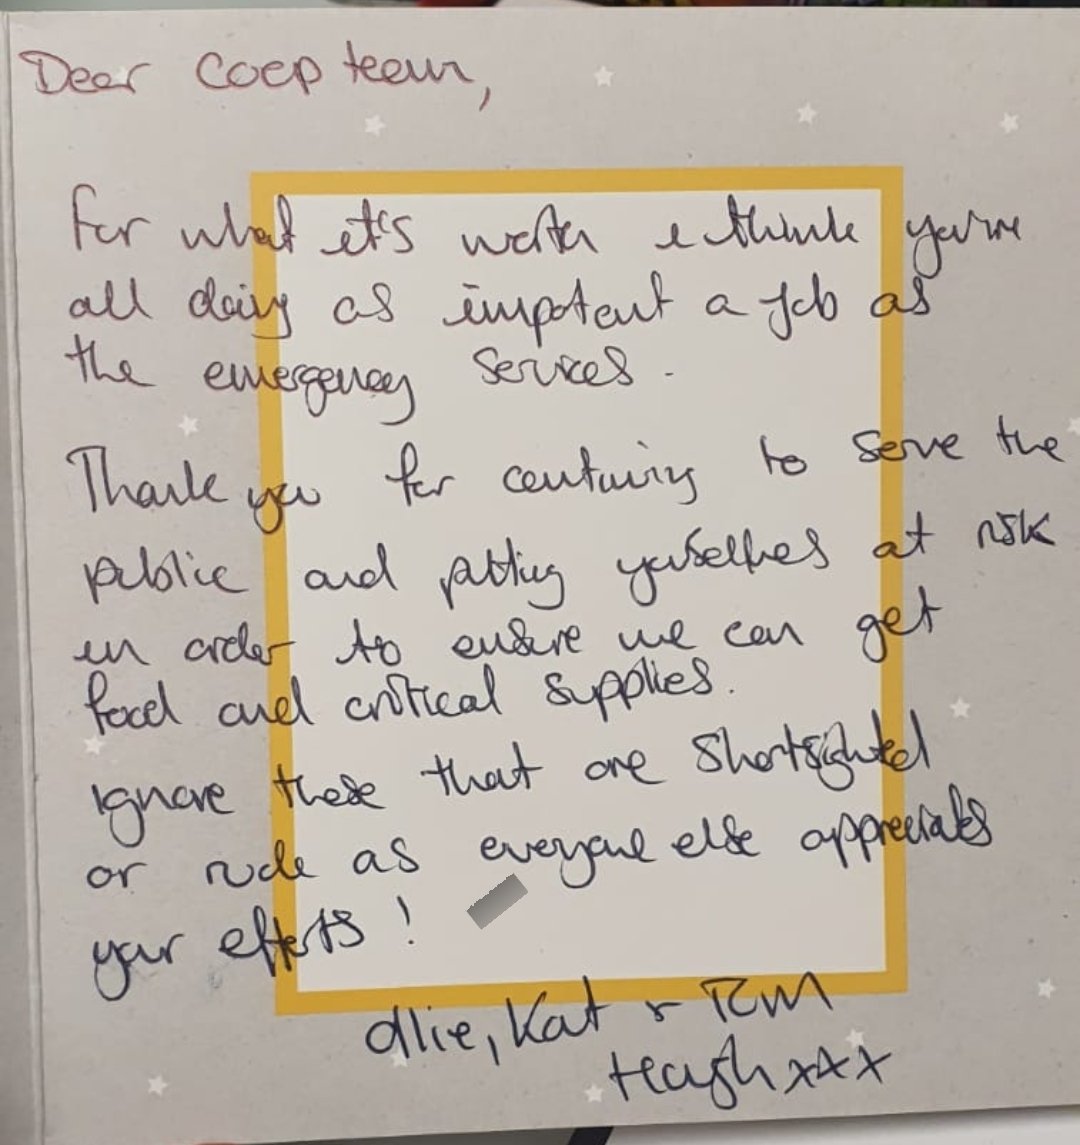 Dear Coop team,
For what it's worth I think you're
all doing as important a job as
the emergency services.
Thank you for continuing to serve the
public and putting yourselves at risk
in order to ensure we can get
food and critical supplies.
Ignore those that are shortsighted
or rude as everyone else appreciates
your efforts!
Ollie, Kat & Tom
xxx